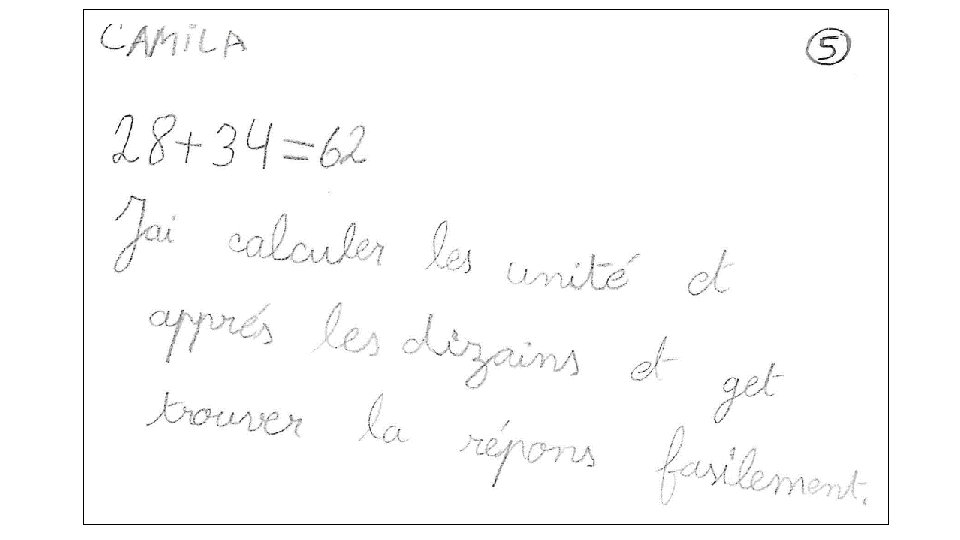 CAMiLA
5
28+34=62
Jai calculer les unité et
apprés les dizains et get
trouver la répons fasilement.